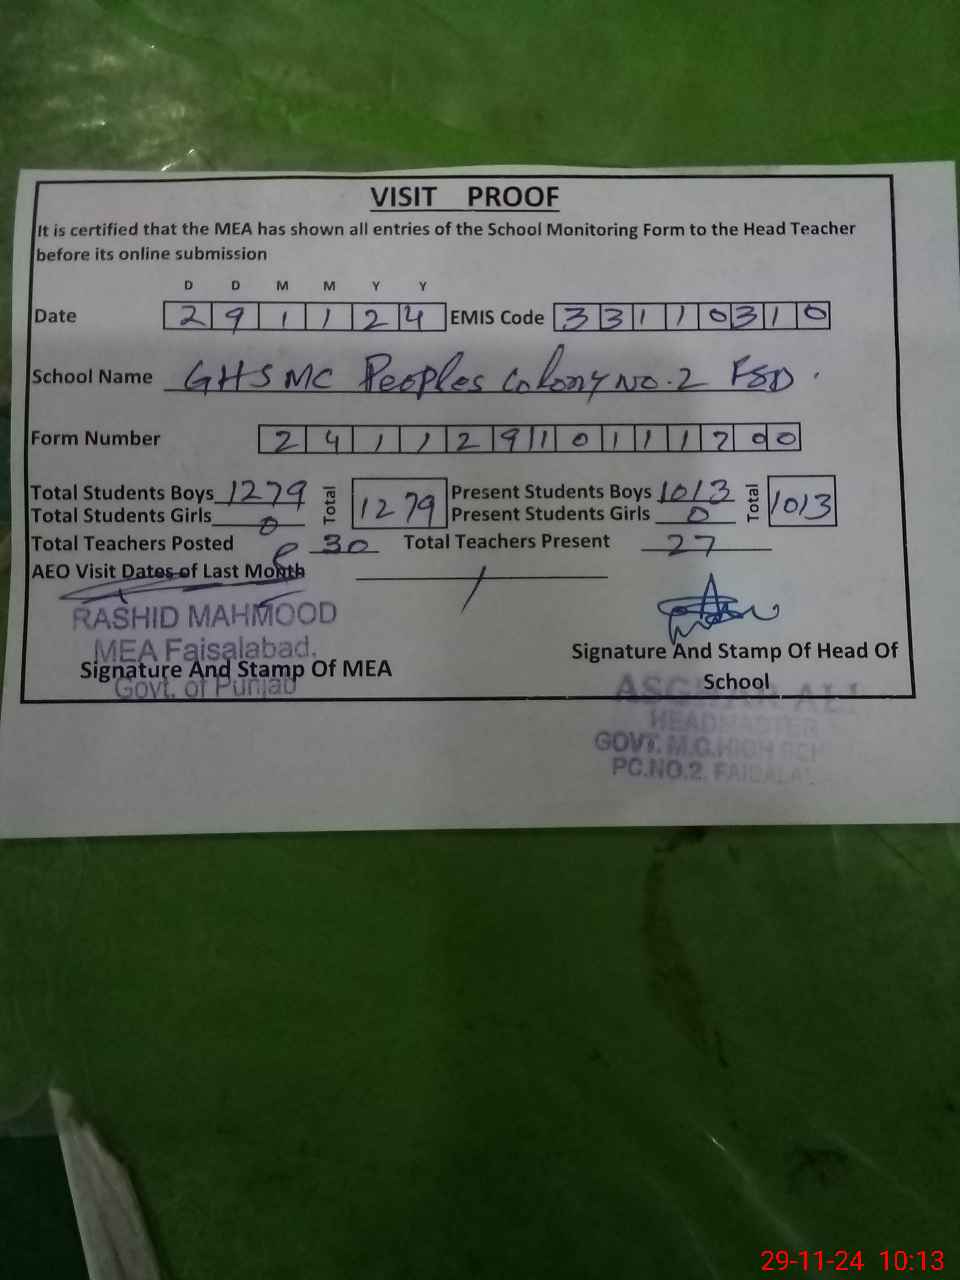 VISIT PROOF
It is certified that the MEA has shown all entries of the School Monitoring Form to the Head Teacher
before its online submission
D D M M Y Y
Date 2 9 1 1 2 4 EMIS Code 3 3 1 1 0 3 1 0
School Name GHSMC Peoples Colony No. 2 FSD.
Form Number 2 4 1 1 2 9 1 0 1 1 1 2 0 0
Total Students Boys 1279 Total 1279 Present Students Boys 1013 Total 1013
Total Students Girls 0 Present Students Girls 0
Total Teachers Posted 30 Total Teachers Present 27
AEO Visit Dates of Last Month /
RASHID MAHMOOD
MEA Faisalabad.
Signature And Stamp Of MEA
Govt. of Punjab
Signature And Stamp Of Head Of
School
ASGHAR ALI
HEADMASTER
GOVT. M.C. HIGH
PC.NO.2,
29-11-24 10:13